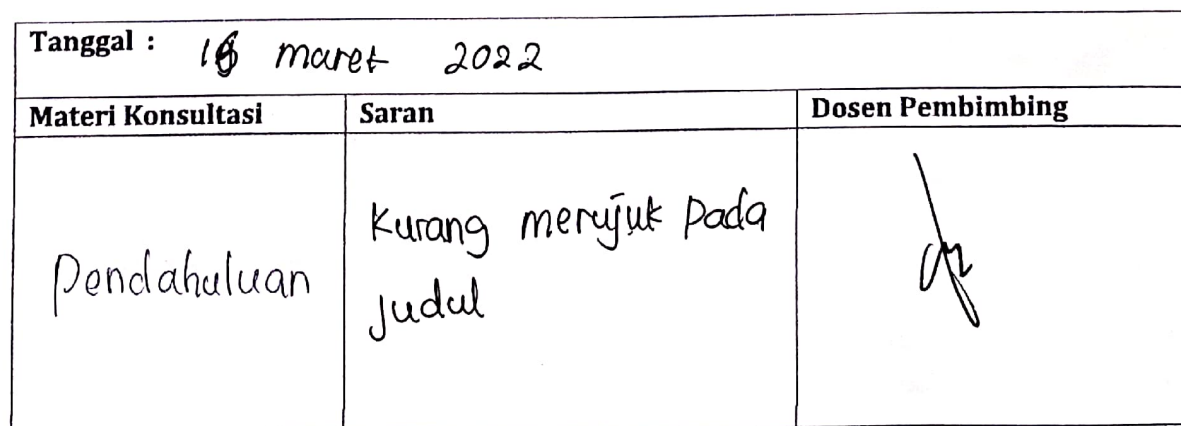 Tanggal : maret 2022
Materi Konsultasi Saran Dosen Pembimbing
Pendahuluan
Kurang merujuk pada
judul